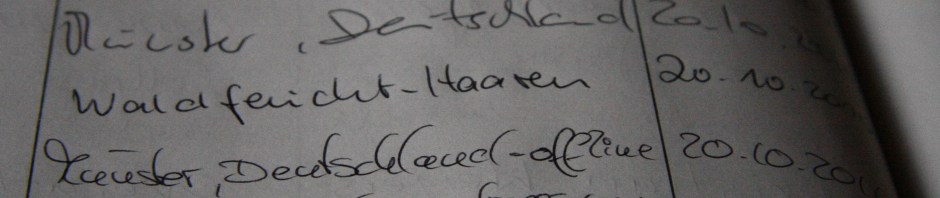 Münster, Deutschland 20.10.
Waldfeucht-Haaren 20.10.20
Münster, Deutschland-offline 20.10.20